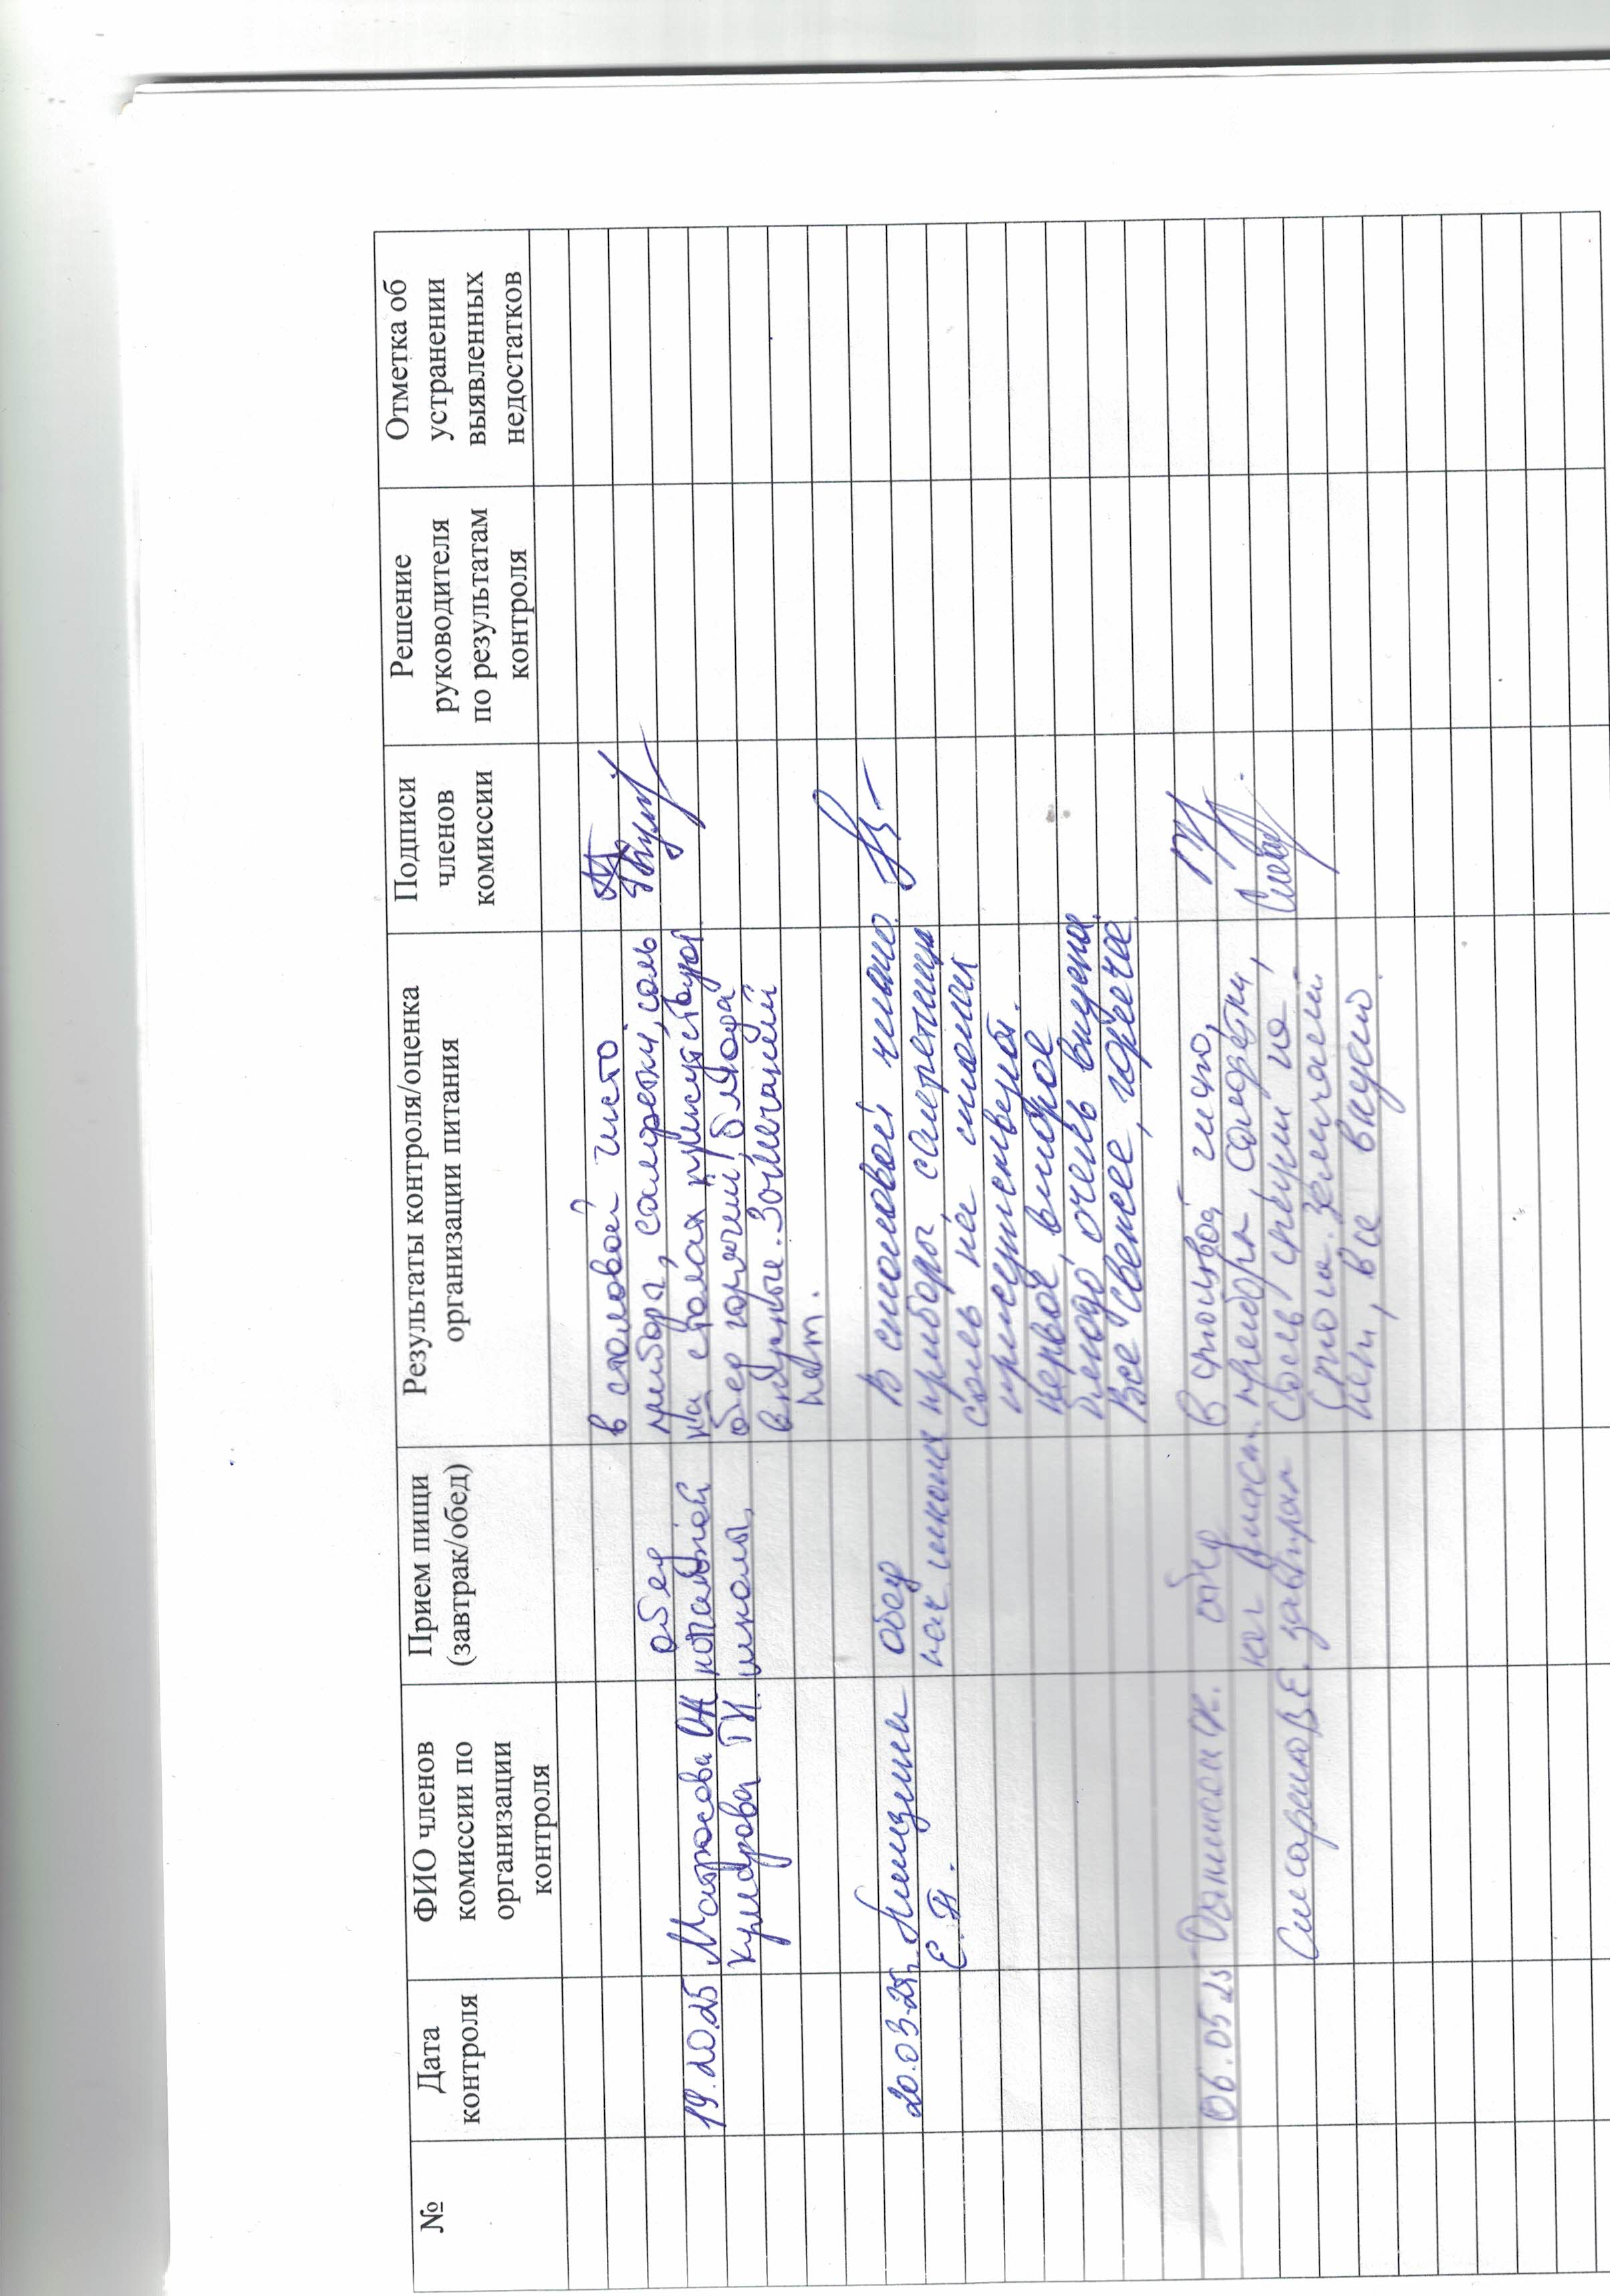 №
Дата
контроля
ФИО членов
комиссии по
организации
контроля
Прием пищи
(завтрак/обед)
Результаты контроля/оценка
организации питания
Подписи
членов
комиссии
Решение
руководителя
по результатам
контроля
Отметка об
устранении
выявленных
недостатков
19.2025
Матросова
Кумарова Г.И.
обед
начальной
школы,
в столовой чисто.
прибора, салфетки, соль
на столах присутствуют
обед горячий, блюда
вкусные. Замечаний
нет.
20.03.25г.
Е.
обед
нач школа
В столовой чисто.
приборы салфетницы
соль на столах
присутствуют.
первое, второе
блюдо очень вкусно.
Все свежее, горячее.
06.05.25
обед
завтрак
В столовой чисто,
приборы, салфетки,
соль, специи на
столе. Замечаний
нет, все вкусно.